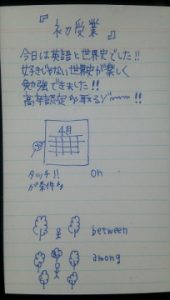 『初授業』
今日は英語と世界史でした!!
好きじゃない世界史が楽しく
勉強できました!!
高卒認定が取るぞ〜〜!!
4月
タッチ!!
が条件
on
between
among